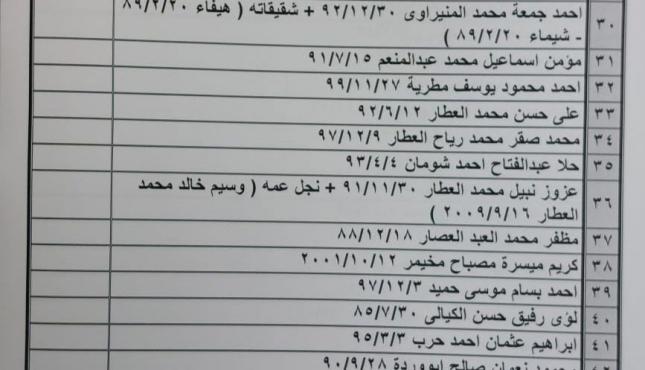 ٣٠ احمد جمعة محمد المنيراوى ٩٢/١٢/٣٠ + شقيقاته ( هيفاء ٨٩/٢/٢٠
- شيماء ٨٩/٢/٢٠ )
٣١ مؤمن اسماعيل محمد عبدالمنعم ٩١/٧/١٥
٣٢ احمد محمود يوسف مطرية ٩٩/١١/٢٧
٣٣ على حسن محمد العطار ٩٢/٦/١٢
٣٤ محمد صقر محمد رياح العطار ٩٧/١٢/٩
٣٥ حلا عبدالفتاح احمد شومان ٩٣/٤/٤
٣٦ عزوز نبيل محمد العطار ٩١/١١/٣٠ + نجل عمه ( وسيم خالد محمد
العطار ٢٠٠٩/٩/١٦ )
٣٧ مظفر محمد العبد العصار ٨٨/١٢/١٨
٣٨ كريم ميسرة مصباح مخيمر ٢٠٠١/١٠/١٢
٣٩ احمد بسام موسى حميد ٩٧/١٢/٣
٤٠ لؤى رفيق حسن الكيالى ٨٥/٧/٣٠
٤١ ابراهيم عثمان احمد حرب ٩٥/٣/٣
٤٢ نعمان صالح ابووردة ٩٠/٩/٢٨